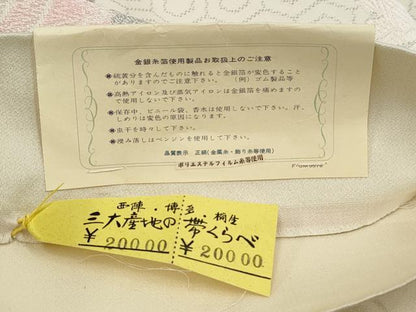 金銀糸箔使用製品お取扱上のご注意
●硫黄分を含んだものに触れると金銀箔が変色すること
がありますのでご注意下さい。 （例）ゴム製品等
●高熱アイロン及び蒸気アイロンは金銀箔を痛めますの
で使用しないで下さい。
●保存中、ビニール袋、香水は使用しないで下さい。汗、
しめりは変色の原因になります。
●虫干を時々して下さい。
●浸み落しはベンジンを使用して下さい。
品質表示 正絹(金属糸・飾り糸等使用)
ポリエステルフィルム糸等使用
西陣・博多 桐生
三大産地の帯くらべ
¥20000 ¥20000